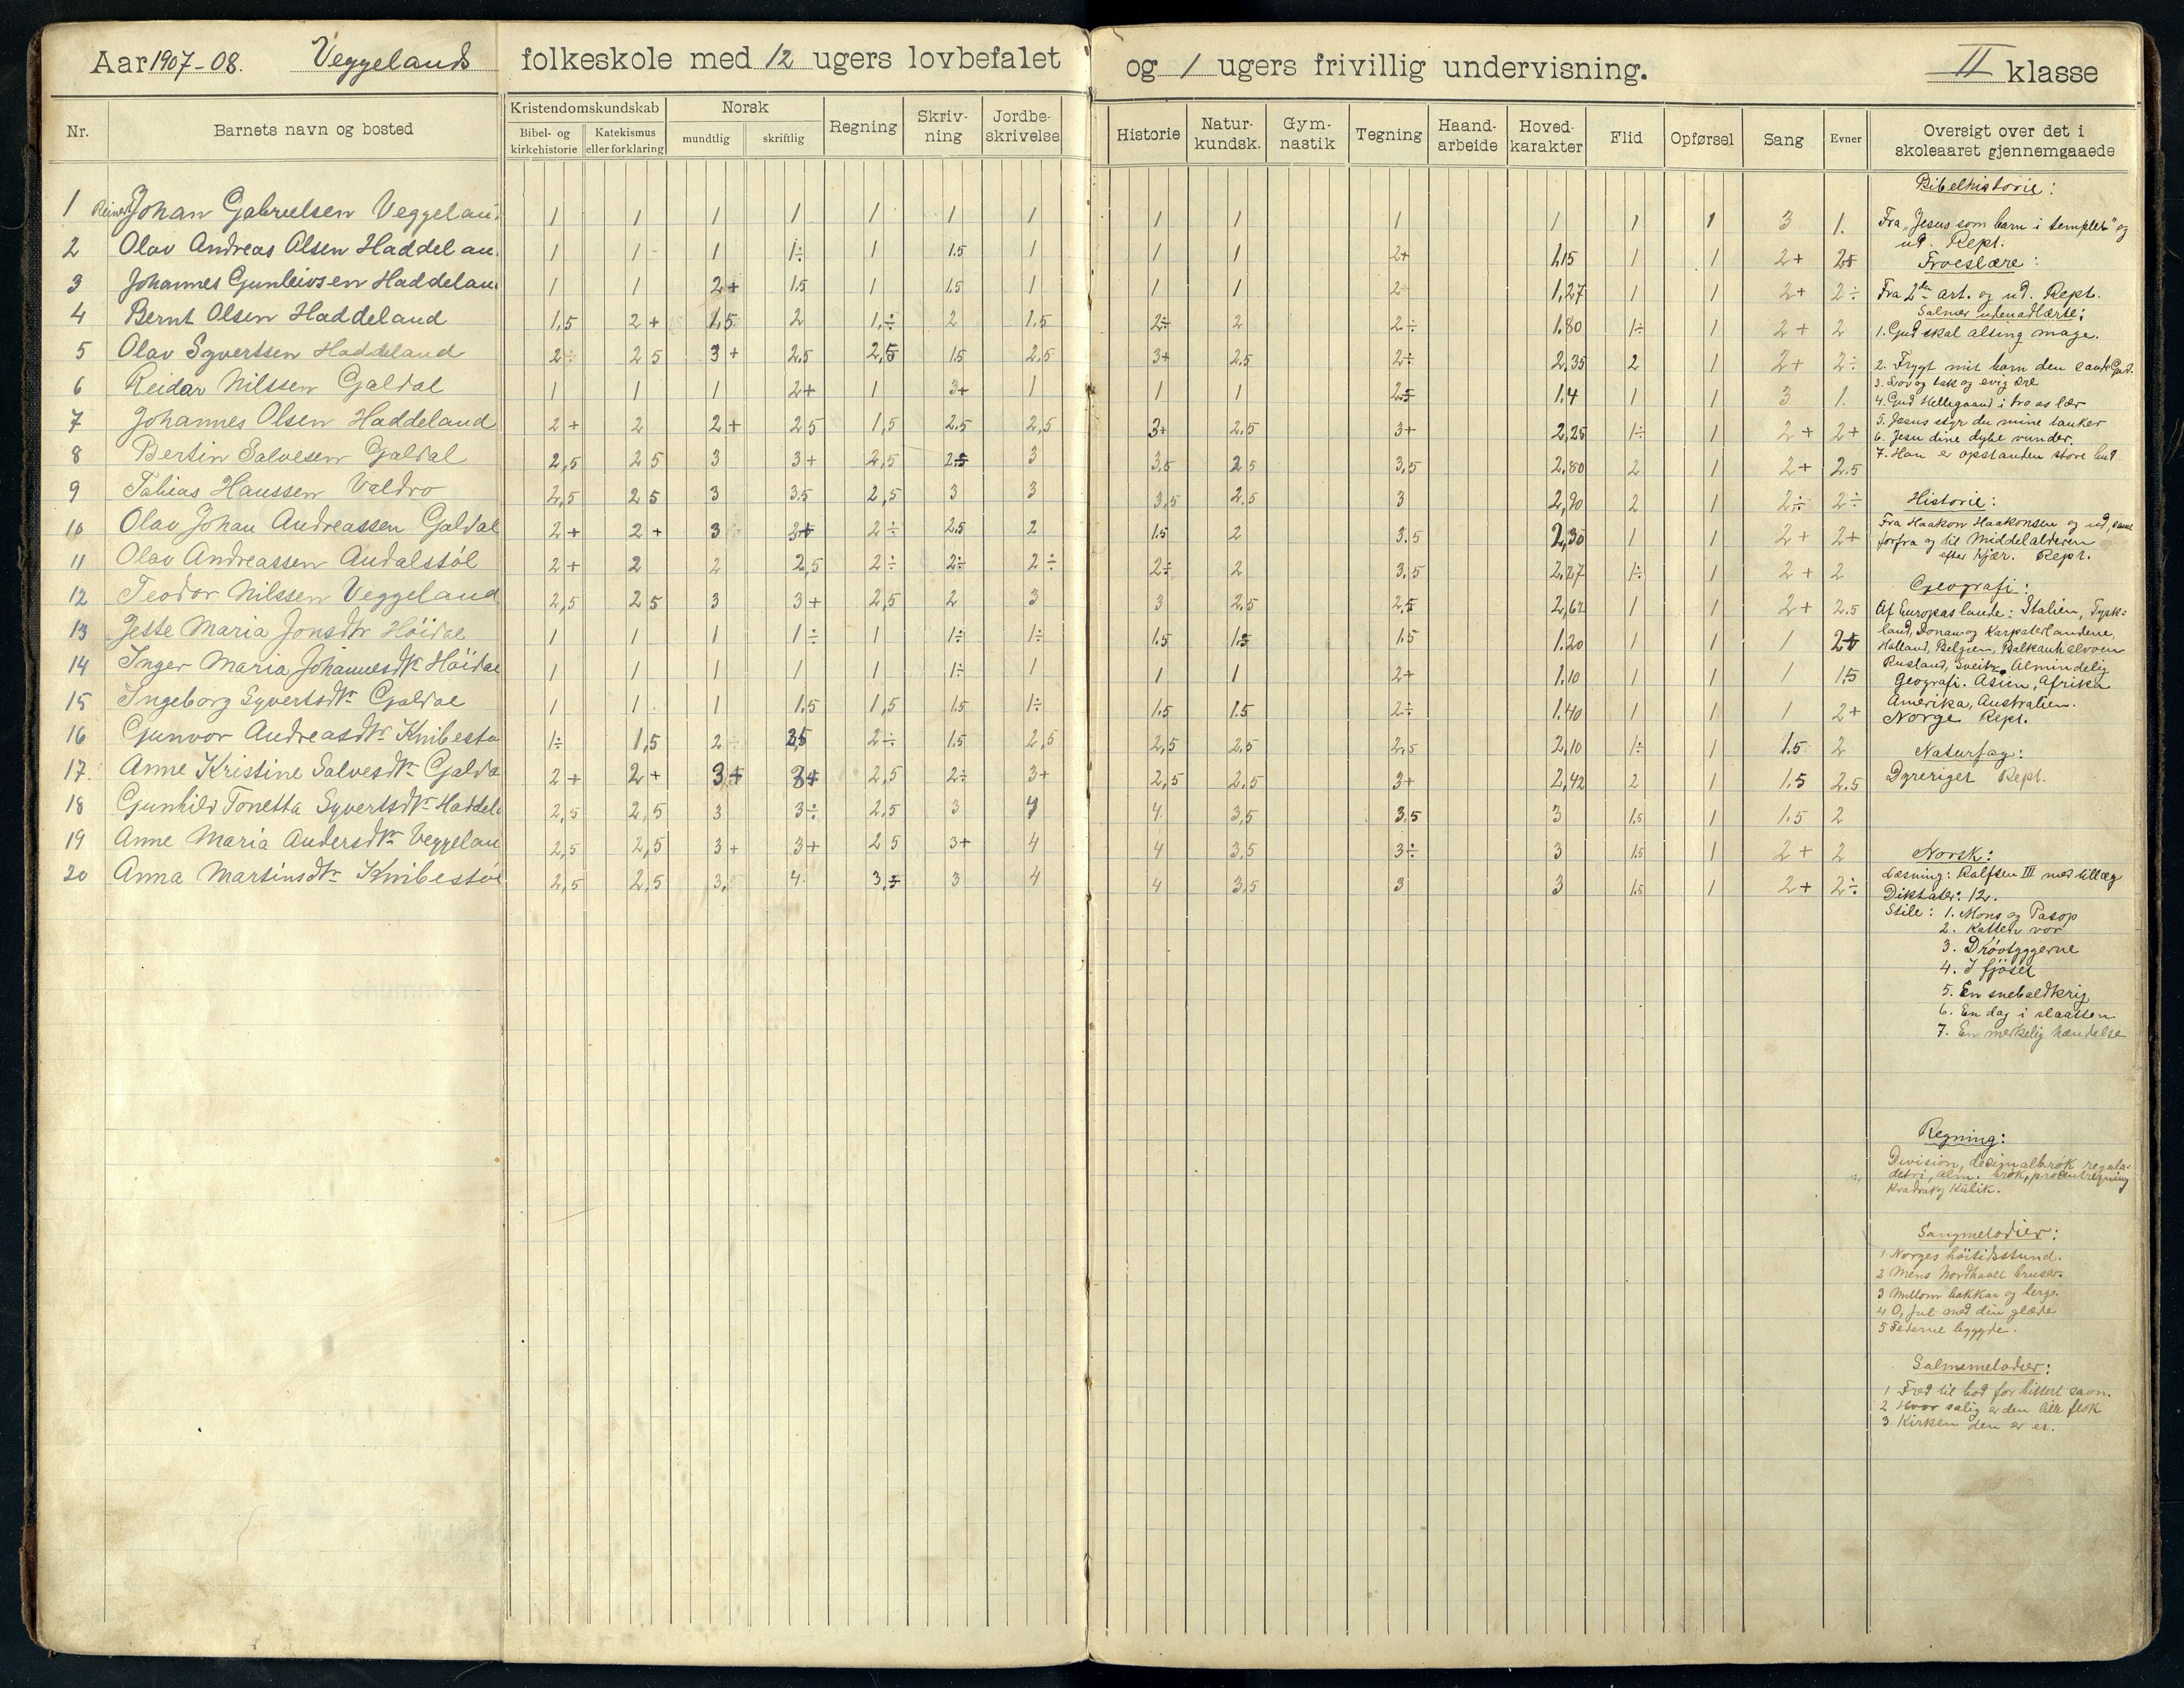 Aar 1907-08. Veggelands folkeskole med 12 ugers lovbefalet og 1 ugers frivillig undervisning. II klasse
Nr. Barnets navn og bosted Kristendomskundskab Bibel- og kirkehistorie Katekismus eller forklaring Norsk mundtlig skriftlig Regning Skriv-ning Jordbe-skrivelse Historie Natur-kundsk. Gym-nastik Tegning Haand-arbeide Hoved-karakter Flid Opførsel Sang Evner Oversigt over det i skoleaaret gjennemgaaede
1 Reinert Johan Gabrielsen Veggelan 1 1 1 1 1 1 1 1 1 1 1 1 1 3 1.
2 Olav Andreas Olsen Haddelan 1 1 1 1÷ 1 1.5 1 1 1 2+ 1,15 1 1 2+ 2+
3 Johannes Gunleivsen Haddelan 1 1 2+ 1.5 1 1.5 1 1 1 2 1,27 1 1 2+ 2÷
4 Bernt Olsen Haddeland 1,5 2+ 1,5 2 1,÷ 2 1.5 2÷ 2 2÷ 1.80 1÷ 1 2+ 2
5 Olav Syvertsen Haddeland 2÷ 2 5 3+ 2.5 2,5 1.5 2,5 3+ 2.5 2÷ 2,35 2 1 2+ 2÷
6 Reidar Nilssen Galdal 1 1 1 2+ 1 3+ 1 1 1 2.5 1.4 1 1 3 1.
7 Johannes Olsen Haddeland 2+ 2 2+ 2 5 1,5 2.5 2,5 3+ 2.5 3+ 2,25 1÷ 1 2+ 2+
8 Bertin Salvesen Galdal 2,5 2 5 3 3+ 2,5 2.5 3 3.5 2 5 3,5 2,80 2 1 2+ 2.5
9 Tobias Hanssen Valdro 2,5 2 5 3 3.5 2,5 3 3 3,5 2.5 3 2,90 2 1 2÷ 2÷
10 Olav Johan Andreassen Galdal 2+ 2+ 3 3+ 2÷ 2.5 2 1.5 2 3.5 2,30 1 1 2+ 2+
11 Olav Andreassen Audalstöl 2+ 2 2 2,5 2÷ 2÷ 2÷ 2÷ 2 3.5 2.27 1÷ 1 2+ 2
12 Teodor Nilssen Veggeland 2,5 2 5 3 3+ 2,5 2 3 3 2.5 2,5 2,62 1 1 2+ 2.5
13 Jette Maria Jonsdtr Höidal 1 1 1 1÷ 1 1÷ 1÷ 1.5 1.5 1.5 1.20 1 1 1 2+
14 Inger Maria Johannesdtr Höidal 1 1 1 1 1 1÷ 1 1 1 2+ 1.10 1 1 1 1,5
15 Ingeborg Syvertsdtr Galdal 1 1 1 1.5 1,5 1.5 1÷ 1.5 1.5 2÷ 1.40 1 1 1 2+
16 Gunvor Andreasdtr Knibestø 1÷ 1,5 2÷ 2,5 2÷ 1.5 2,5 2,5 2.5 2.5 2,10 1÷ 1 1.5 2
17. Anne Kristine Salvesdtr Galda 2+ 2+ 3+ 3+ 2,5 2÷ 3+ 2,5 2.5 3+ 2,42 2 1 1.5 2.5
18 Gunhild Tonetta Syvertsdtr Haddel 2,5 2,5 3 3÷ 2,5 3 4 4 3,5 3.5 3 1.5 1 1.5 2
19 Anne Maria Andersdtr Veggelan 2,5 2,5 3+ 3+ 2 5 3+ 4 4 3.5 3÷ 3 1.5 1 2+ 2
20 Anna Martinsdtr Knibestøl 2,5 2,5 3, 4 3,5 3 4 4 3,5 3 3 1.5 1 2+ 2÷
Bibelhistorie:
Fra "Jesus som barn i templet" og
ud. Rept.
Troeslære:
Fra 2den art. og ud. Rept.
Salmer udenadlærte:
1. Gud skal alting mage.
2. Frygt mit barn den sande Gud.
3. Lov og tak og evig ære
4. Gud Helligaand i tro os lær
5. Jesus styr du mine tanker
6. Jesu dine dybe vunder.
7. Han er opstanden store bud
Historie:
Fra Haakon Haakonsen og ud, samt
forfra og til Middelalderen
efter Kjær. Rept.
Geografi:
Af Europas lande: Italien, Tysk-
land, Donau og Karpaterlandene,
Holland, Belgien, Balkanhalvøen
Rusland, Sveitz. Almindelig
Geografi. Asien, Afrika
Amerika, Australien.
Norge Rept.
Naturfag:
Dyreriget Rept.
Norsk:
Læsning: Rolfsen III med tillæg
Diktater: 12.
Stile: 1. Mons og Pasop
2. Katten vor
3. Drövtyggerne
4. I fjöset
5. En sneboldkrig
6. En dag i slaatten
7. En merkelig hændelse
Regning:
Division, decimalbrök regula-
detri, alm. brök, procentregning
Kvadrat og Kubik.
Sangmelodier:
1 Norges höitidsstund.
2 Mens Nordhavet bruser.
3 Millom bakkar og berg.
4 O, jul med din glæde
5 Federne byggede.
Salmemelodier:
1 Fred til bod for bittert savn.
2 Hvor salig er den lille flok
3 Kirken den er et.